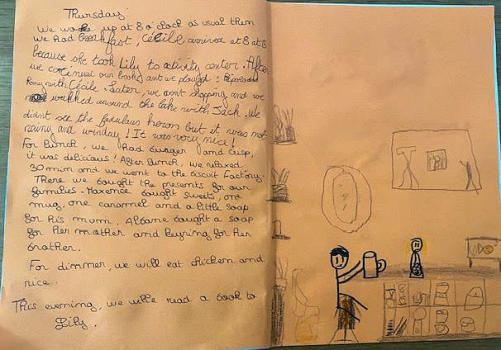 Thursday
We woke up at 8 o'clock as usual then
we had breakfast, Cécile arrived at 8 at 8
because she took Lily to activity center. After
we continued our books and we played :
Rony with Cécile. Later, we went shopping and we
walked around the lake with Jack. We
didn't see the fabulous heron but it was not
rainy and winday! It was very nice!
For lunch, we had burger and crisp,
it was delicious! After lunch, we relaxed
30 min and we went to the biscuit factory.
There we bought the presents for our
families - Maxence bought sweets, one
mug, one caramel and a little soap
for his mum. Albane bought a soap
for her mother and keyring for her
brother.
For dinner, we will eat chicken and
rice.
This evening, we will read a book to
Lily.